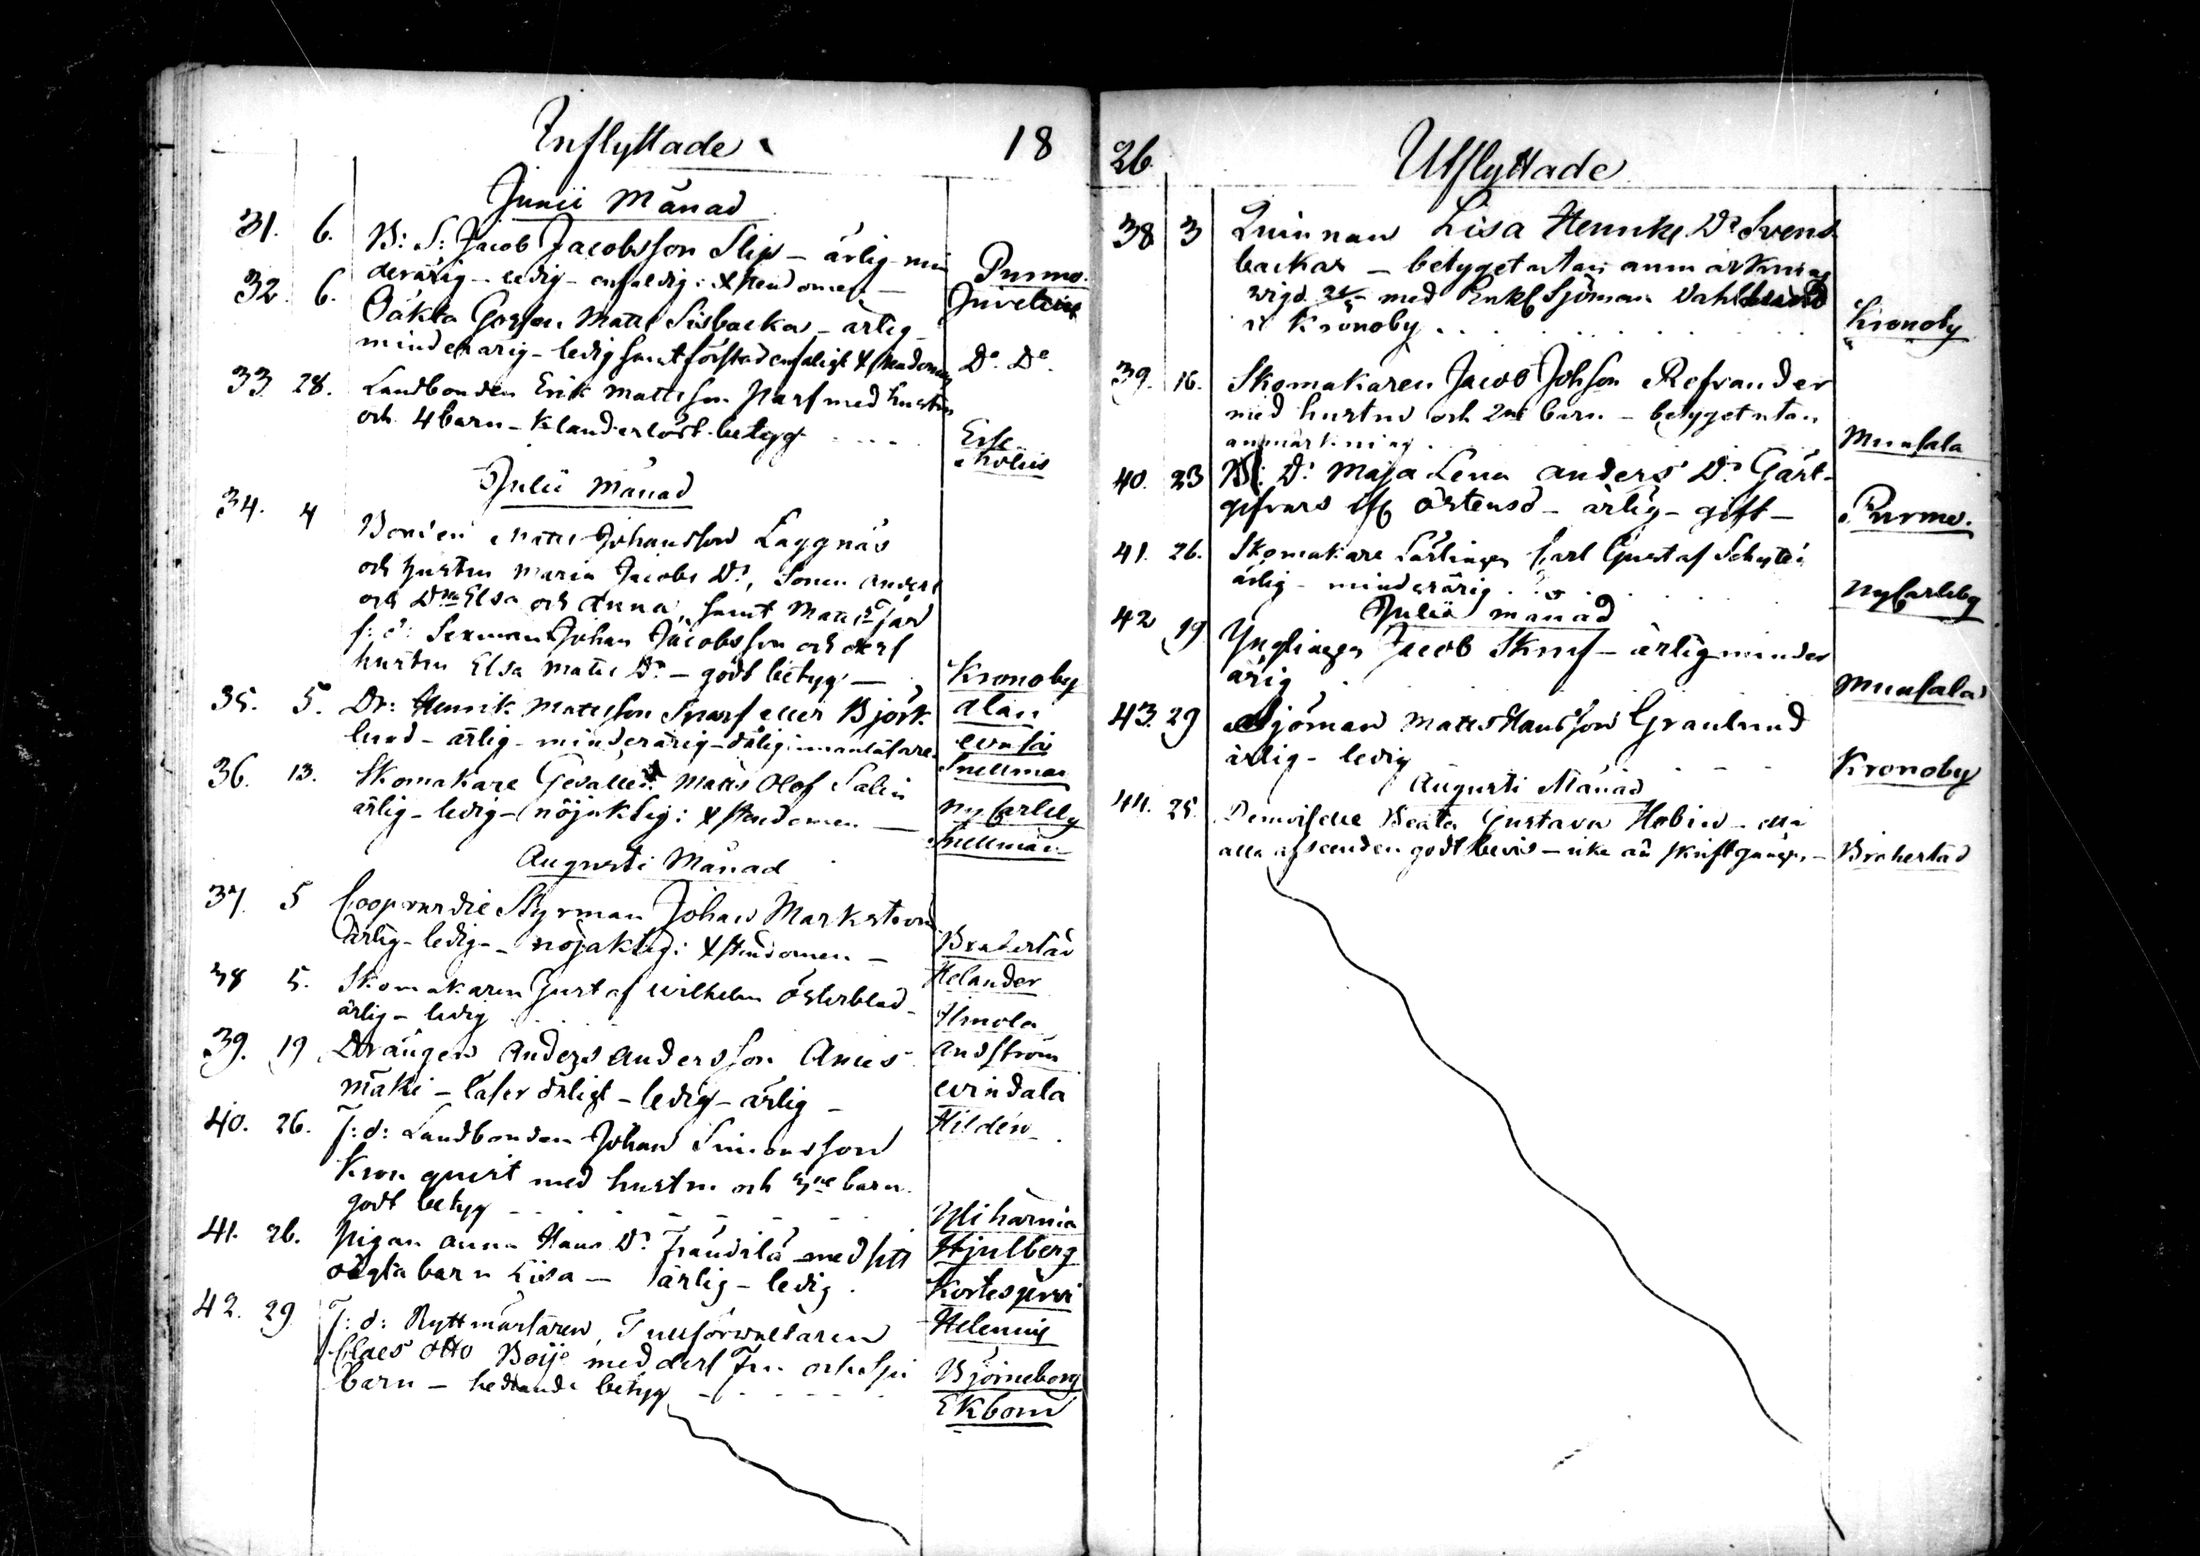 Inflyttade 18
Junii Månad
31. 6. B: S: Jacob Jacobsson Slip – ärlig – min
derårig – ledig – enfaldig i Xstendomen – Purmo.
32. 6. Oäkta Gossen Matts Sisbacka – ärlig – Juvelius
minderårig – ledig samt förstod enfaldigt Xstendomen Do. Do.
33. 28. Landbonden Erik Mattsson Narf med hustru
och 4 barn – Klanderlöst betyg Esse
Julii Månad
34. 4 Bonden Matts Johansson Laggnäs
och hustru Maria Jacobs Dr, Sonen Anders
och Dne Elsa och Anna, samt Matts
f: d: Sexman Johan Jacobsson och dess
hustru Elsa Matts Dr – godt betyg – Kronoby
35. 5. Dr: Henrik Mattsson Snarf eller Björk
lund – ärlig – minderårig – dålig innanläsare
Snellman
36. 13. Skomakare Gesällen Matts Olof Salin
ärlig – ledig – nöjaktig i Xstendomen – NyCarleby
Snellman
Augusti Månad
37. 5 Coopvardie Styrman Johan Markström
ärlig – ledig – nöjaktig i Xstendomen – Brahestad
38 5. Skomakaren Gustaf Wilhelm Österblad – Helander
ärlig – ledig Ilmola
39. 19 Drängen Anders Andersson Anis Andström
mäki – läser dåligt – ledig – ärlig – Windala
40. 26. F: d: Landbonden Johan Simonsson Hildén
Kronqvist med hustru och barn
godt betyg Yliharma
41. 26. Pigan Anna Hans Dr Frändilä med sitt Hjulberg
oägta barn Lisa – ärlig – ledig. Kortesjerwi
42. 29 F: d: Ryttmästaren, Tullförwaltaren Helenius
Claes Otto Boije med dess Fru och sju Björneborg
barn – hedrande betyg Ekbom
26. Utflyttade
38 3 Quinnan Lisa Henriks Dr Svens
backar – betyget utan anmärkning
wigd med Enkl Sjöman Dahl
i Kronoby Kronoby
39. 16. Skomakaren Jacob Johsson Refrander
med hustru och 2ne barn – betyget utan
anmärkning Munsala
40. 23 B: D: Maja Lena Anders Dr Gäst-
gifvars Östensö – ärlig – gift – Purmo.
41. 26. Skomakare Lärlingen Carl Gustaf Schytén
ärlig – minderårig NyCarleby
Julii månad
42 19 Ynglingen Jacob Skruf – ärlig minder
årig Munsala
43. 29 Sjöman Matts Hansson Granlund
ärlig – ledig Kronoby
Augusti Månad
44. 25. Demoiselle Beata Gustava Hobin –
alla afseenden godt bevis – Brahestad